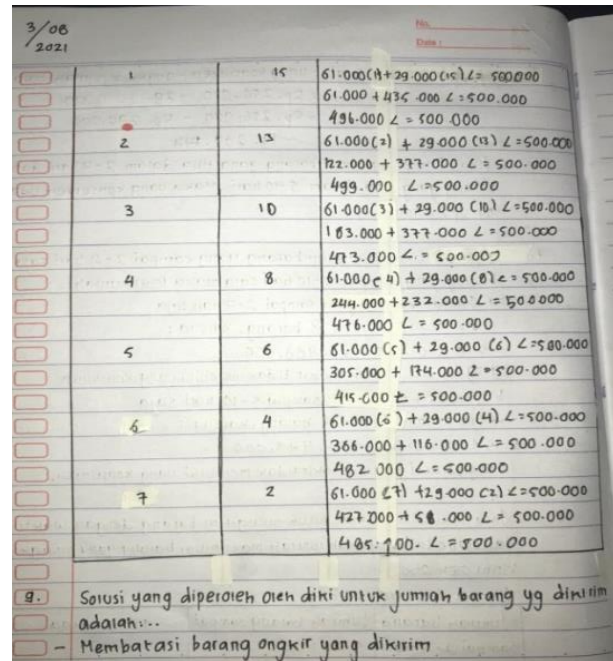 3/08
2021
No.
Date :
1 15 61.000(1)+29.000(15) ∠= 500.000
61.000 + 435.000 ∠= 500.000
496.000 ∠= 500.000
2 13 61.000(2) + 29.000(13) ∠=500.000
122.000 + 377.000 ∠= 500.000
499.000 ∠=500.000
3 10 61.000(3) + 29.000(10) ∠=500.000
183.000 + 377.000 ∠=500.000
473.000 ∠= 500.000
4 8 61.000(4) + 29.000(8) ∠= 500.000
244.000 + 232.000 ∠= 500.000
476.000 ∠= 500.000
5 6 61.000(5) + 29.000(6) ∠=500.000
305.000 + 174.000 ∠= 500.000
415.000 ∠= 500.000
6 4 61.000(6) + 29.000(4) ∠=500.000
366.000 + 116.000 ∠= 500.000
482.000 ∠= 500.000
7 2 61.000(7) + 29.000(2) ∠=500.000
427.000 + 58.000 ∠= 500.000
485.100. ∠= 500.000
9. Solusi yang diperoleh oleh diki untuk jumlah barang yg dikirim
adalah...
- Membatasi barang ongkir yang dikirim